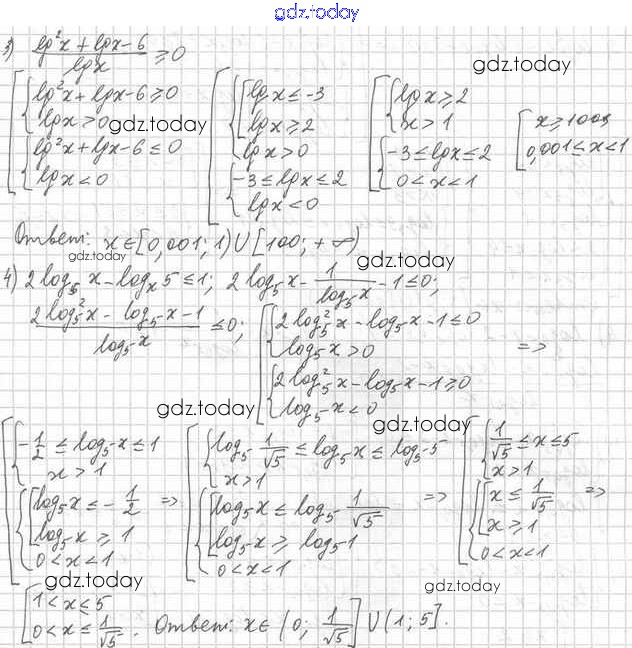 gdz.today
3) (lg²x + lgx - 6)/lgx ≥ 0
gdz.today
[ { lg²x + lgx - 6 ≥ 0
lgx > 0
{ lg²x + lgx - 6 ≤ 0
lgx < 0
gdz.today
[ { [ lgx ≤ -3
lgx ≥ 2
lgx > 0
{ -3 ≤ lgx ≤ 2
lgx < 0
[ { lgx ≥ 2
x > 1
{ -3 ≤ lgx ≤ 2
0 < x < 1
[ x ≥ 100
0,001 ≤ x < 1
Ответ: x ∈ [0,001; 1) ∪ [100; +∞)
gdz.today
gdz.today
4) 2log₅x - logₓ5 ≤ 1; 2log₅x - 1/log₅x - 1 ≤ 0;
(2log₅²x - log₅x - 1)/log₅x ≤ 0; [ { 2log₅²x - log₅x - 1 ≤ 0
log₅x > 0 =>
{ 2log₅²x - log₅x - 1 ≥ 0
log₅x < 0
gdz.today
gdz.today
[ { -1/2 ≤ log₅x ≤ 1
x > 1
{ [ log₅x ≤ -1/2 =>
log₅x ≥ 1
0 < x < 1
[ { log₅ 1/√5 ≤ log₅x ≤ log₅5
x > 1
{ [ log₅x ≤ log₅ 1/√5 =>
log₅x ≥ log₅1
0 < x < 1
[ { 1/√5 ≤ x ≤ 5
x > 1
{ [ x ≤ 1/√5 =>
x ≥ 1
0 < x < 1
gdz.today
gdz.today
[ 1 < x ≤ 5
0 < x ≤ 1/√5. Ответ: x ∈ (0; 1/√5] ∪ (1; 5].